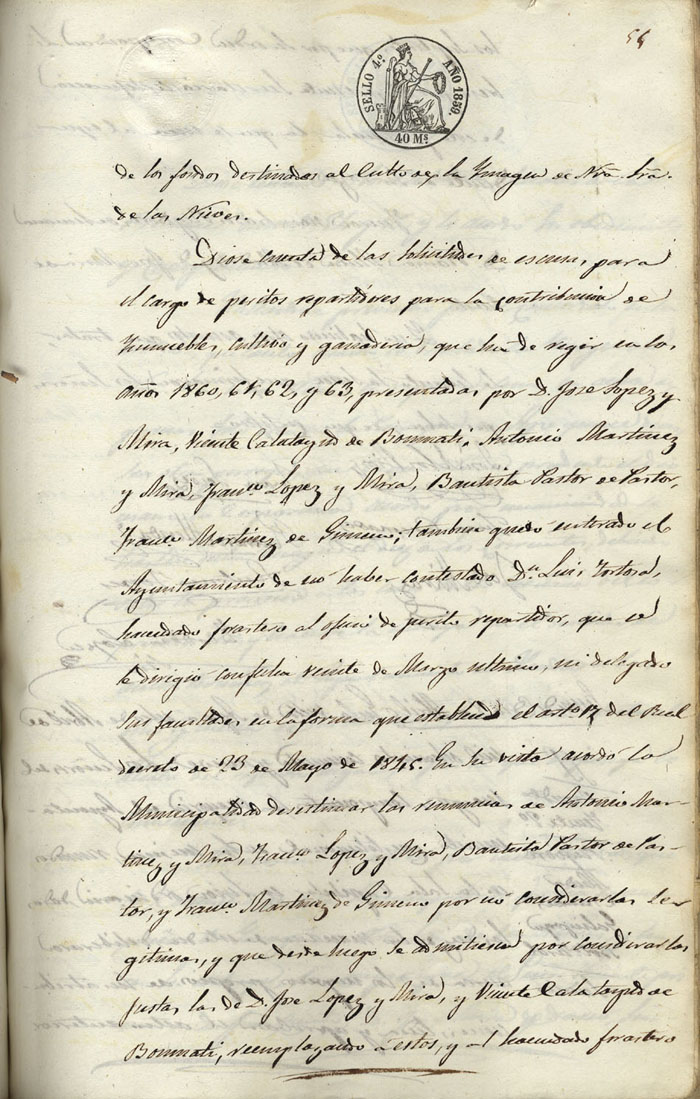 54
SELLO 4º AÑO 1859.
40 Ms
de los fondos destinados al Culto de la Ymagen de Ntra. Sra.
de las Nieves.
Diose cuenta de las solicitudes de escusa, para
el cargo de peritos repartidores para la contribucion de
Ynmuebles, cultivo y ganaderia, que ha de regir en los
años 1860, 61, 62, y 63, presentadas por D. Jose Lopez y
Mira, Vicente Calatayud de Bonmati, Antonio Martinez
y Mira, Franco. Lopez y Mira, Bautista Pastor de Pastor,
Franco. Martinez de Gimeno; tambien quedó enterado el
Ayuntamiento de nó haber contestado Dn. Luis Tortosa,
hacendado forastero al oficio de perito repartidor, que se
le dirigió con fecha veinte de Marzo ultimo, ni delegado
sus facultades en la forma que establece el arto. 17 del Real
decreto de 23 de Mayo de 1845. En su vista acordó la
Municipalidad desestimar las renuncias de Antonio Mar-
tinez y Mira, Franco. Lopez y Mira, Bautista Pastor de Pas-
tor, y Franco. Martinez de Gimeno por nó considerarlas le-
gitimas, y que desde luego se admitiesen por considerarlas
justas las de D. Jose Lopez y Mira, y Vicente Calatayud de
Bonmati, reemplazando á estos, y al hacendado forastero